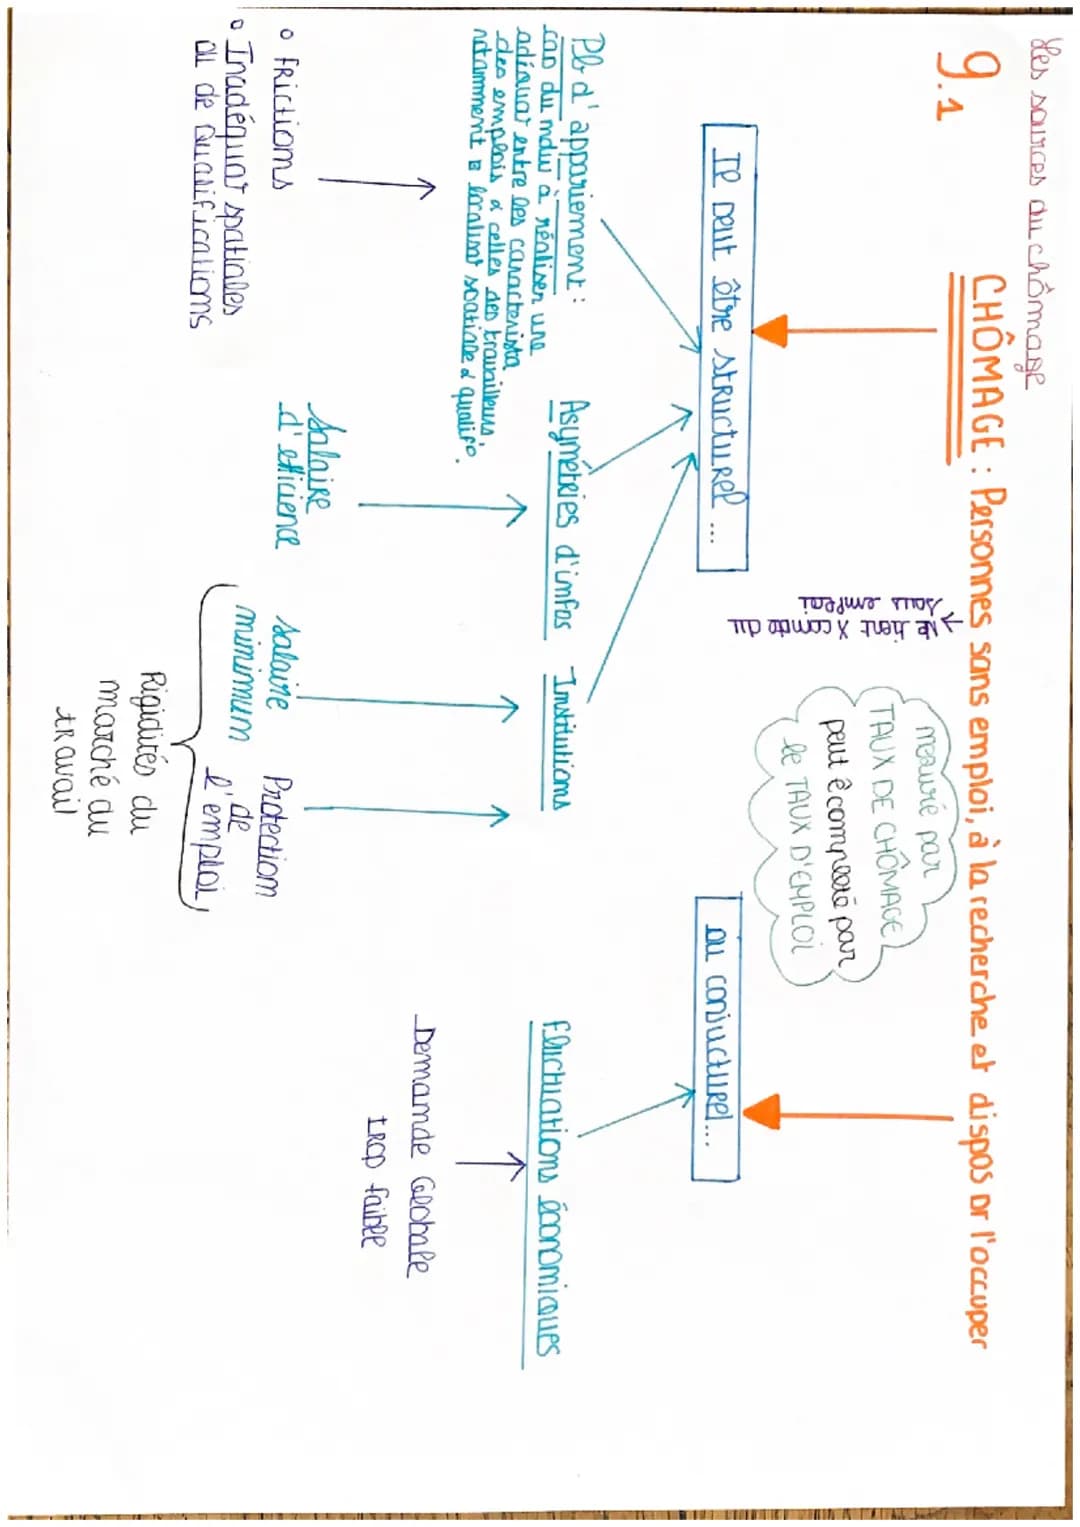 Les sources du chômage
9.1
CHÔMAGE : Personnes sans emploi, à la recherche et dispos pr l'occuper
Ne tient X compte du
sous emploi
mesuré par
TAUX DE CHÔMAGE
peut ê complété par
le TAUX D'EMPLOI
Il peut être structurel ...
ou conjucturel...
Pb d'appariement :
cas du mdw à réaliser une
adéquat° entre les caracterista
des emplois & celles des travailleurs,
notamment localisat° spatiale & qualif°.
Asymétries d'infos
Institutions
Fluctuations économiques
° Frictions
° Inadéquat° spatiales
ou de Qualifications
Salaire
d'efficience
Salaire
minimum
Protection
de
l'emploi
Rigidités du
marché du
travail
Demande Globale
trop faible